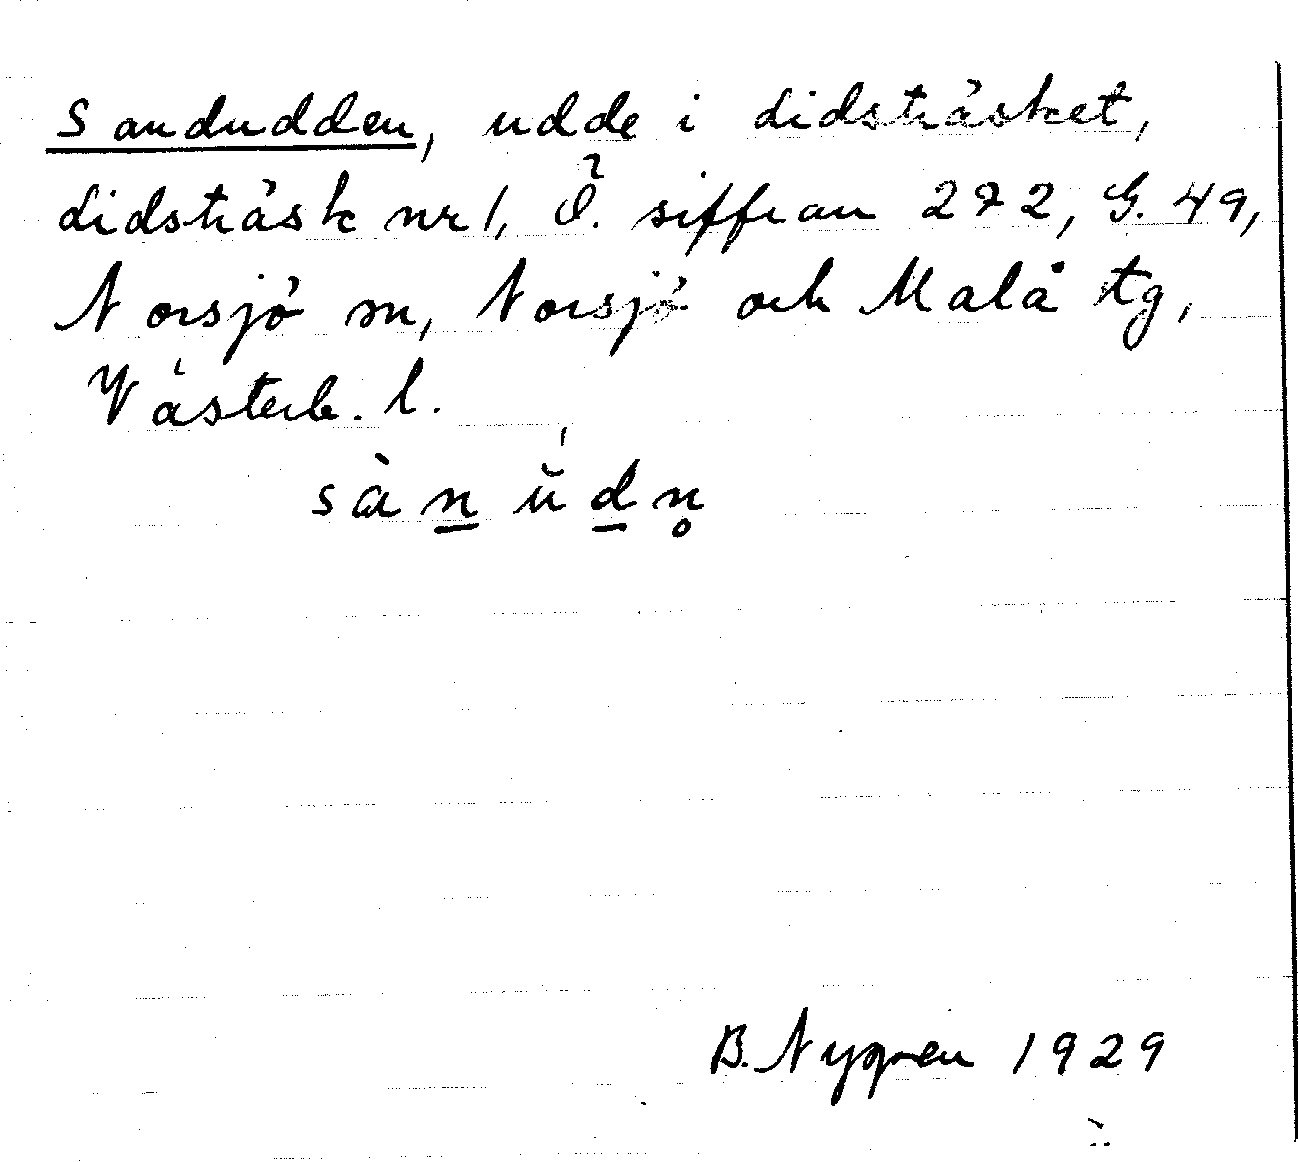 Sandudden, udde i Lidsträsket,
Lidsträsk nr 1, Ö. siffran 272, G. 49,
Norsjö sn, Norsjö och Malå tg,
Västerb. l.
sànŭdn̥
B. Nygren 1929